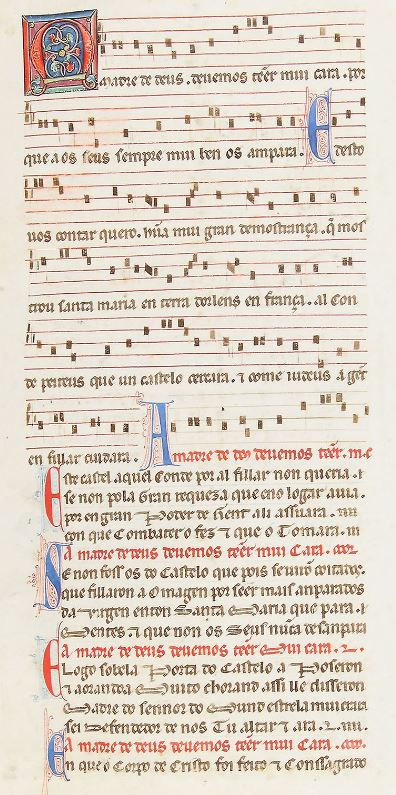 A madre de deus . deuemos tẽer mui cara . por
que a os seus sempre mui ben os ampara . E desto
uos contar quero . hũa mui gran demostrança . q̃ mos
trou santa maria en terra dorlens en frança . al Con
de peiteus que un castelo cercara . ⁊ come iudeus a gẽt
en fillar cuidara . A madre de deus deuemos tẽer . m . c
Este castel aquel Conde por al fillar non queria .
se non pola Gran requeza que eno logar auia .
por en gran Poder de Gent ali assuara .
con que Combater o fez ⁊ que o Tomara .
A madre de deus deuemos tẽer mui Cara .
Se non foss os do Castelo que pois se uirõ coitados .
que fillaron a Omagen por seer mais anparados
da uirgen enton Santa Maria que para .
Mentes ⁊ que non os Seus nũca desanpara
A madre de deus deuemos tẽer Mui cara .
E Logo sobela Porta do Castelo a Poseron
⁊ aorando a Muito chorando assi lle disseron
Madre do sennor do Mund estrela mui crara
sei Defendedor de nos Tu altar ⁊ ara .
A madre de deus deuemos tẽer mui Cara .
En que o Corpo de Cristo foi feito ⁊ Conssagrado